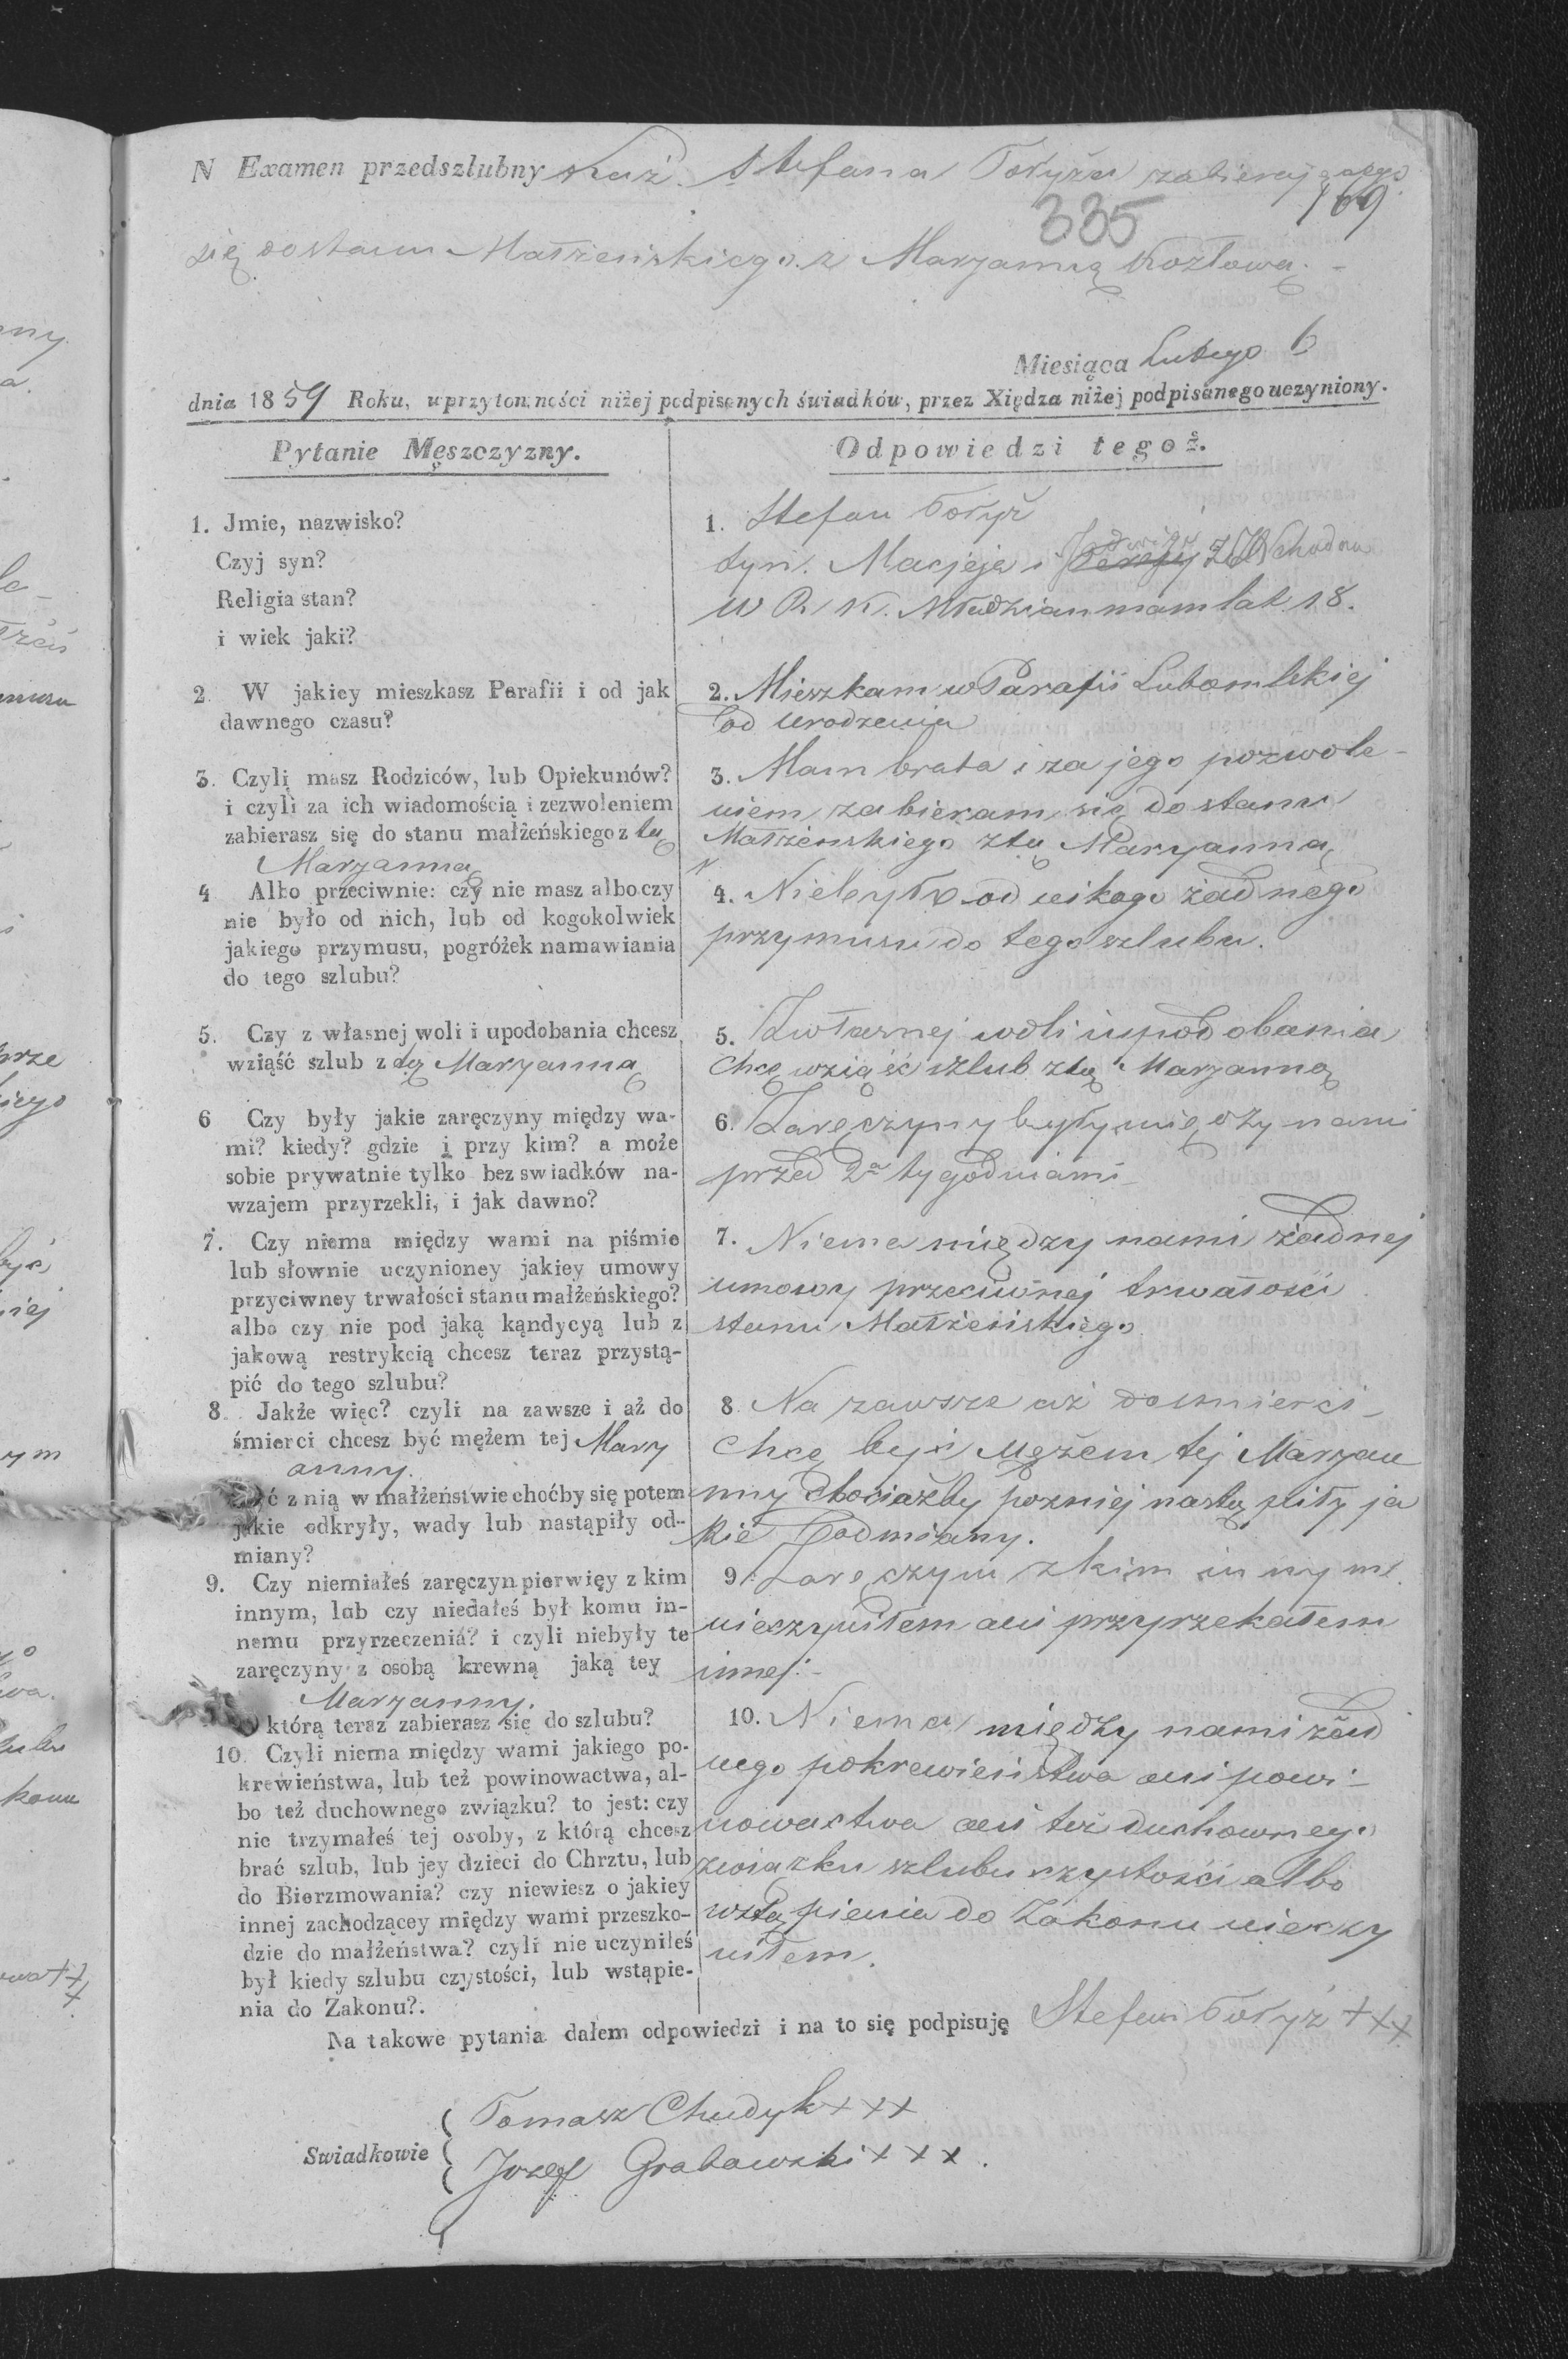 N Examen przedszlubny Stefana Tołyża zabierającego
169
335
się do stanu Małżeńskiego z Maryanną Kozłową. -
Miesiąca Lutego 6
dnia 1859 Roku, w przytomności niżej podpisanych świadków, przez Xiędza niżej podpisanego uczyniony.
Pytanie Męszczyzny.
1. Jmie, nazwisko?
Czyj syn?
Religia stan?
i wiek jaki?
2. W jakiey mieszkasz Parafii i od jak
dawnego czasu?
3. Czyli masz Rodziców, lub Opiekunów?
i czyli za ich wiadomością i zezwoleniem
zabierasz się do stanu małżeńskiego z tą
Maryanną
4 Albo przeciwnie: czy nie masz albo czy
nie było od nich, lub od kogokolwiek
jakiego przymusu, pogróżek namawiania
do tego szlubu?
5. Czy z własnej woli i upodobania chcesz
wziąść szlub z tą Maryanną
6 Czy były jakie zaręczyny między wa-
mi? kiedy? gdzie i przy kim? a może
sobie prywatnie tylko bez swiadków na-
wzajem przyrzekli, i jak dawno?
7. Czy niema między wami na piśmie
lub słownie uczynioney jakiey umowy
przyciwney trwałości stanu małżeńskiego?
albo czy nie pod jaką kąndycyą lub z
jakową restrykcią chcesz teraz przystą-
pić do tego szlubu?
8. Jakże więc? czyli na zawsze i aż do
śmierci chcesz być mężem tej Mary
anny.
z nią w małżeństwie choćby się potem
jakie odkryły, wady lub nastąpiły od-
miany?
9. Czy niemiałeś zaręczyn pierwięy z kim
innym, lub czy niedałeś był komu in-
nemu przyrzeczeniá? i czyli niebyły te
zaręczyny z osobą krewną jaką tey
Maryanny.
którą teraz zabierasz się do szlubu?
10. Czyli niema między wami jakiego po-
krewieństwa, lub też powinowactwa, al-
bo też duchownego związku? to jest: czy
nie trzymałeś tej osoby, z którą chcesz
brać szlub, lub jey dzieci do Chrztu, lub
do Bierzmowania? czy niewiesz o jakiey
innej zachodzącey między wami przeszko-
dzie do małżeństwa? czyli nie uczyniłeś
był kiedy szlubu czystości, lub wstąpie-
nia do Zakonu?.
Odpowiedzi tegoż.
1. Stefan Tołyż
Jadwigi
syn. Macjeja i Teresy Z
W R. K. Młodzian mam lat 18.
2. Mieszkam w Parafii Lubomlskiej
od urodzenia
3. Mam brata i za jego pozwole-
niem zabieram się do stanu
Małżenskiego z tą Maryanną
4. Niebyło od nikogo żadnego
przymusu do tego szlubu.
5. Zwłasnej woli i upodobania
Chcę wziąść szlub z tą Maryanną
6. Zaręczyny były między nami
przed 2a tygodniami
7. Niema między nami żadnej
umowy przeciwnej trwałości
stanu Małżeńskiego
8 Na zawsze aż do śmierci
Chcę być Mężem tej Maryan
ny chociażby pozniej nastąpiły ja
kie odmiany.
9. Zaręczyn z kim innym
nieczyniłem ani przyrzekałem
innej. -
10. Niema między nami żad
nego pokrewieństwa ani powi-
nowactwa ani też duchownego
związku szlubu czystości albo
wstąpienia do Zakonu nieczy
niłem.
Na takowe pytania dałem odpowiedzi i na to się podpisuję Stefan Tołyż +++
Tomasz Chudyk +++
Swiadkowie
Jozef Grabowski + + +.